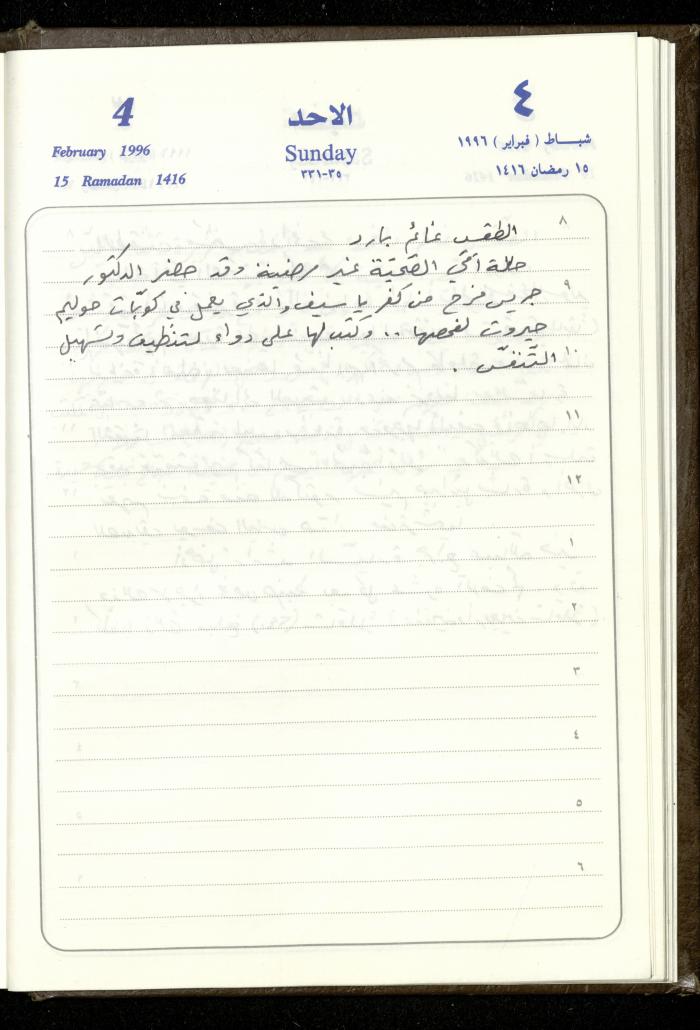 4
February 1996
15 Ramadan 1416
الاحد
Sunday
٣٣١-٣٥
٤
شبـــاط ( فبراير ) ١٩٩٦
١٥ رمضان ١٤١٦
٨
الطقس غائم بارد
حالة امّي الصّحيّة غير مرضية وقد حضر الدكتور
٩
جريس فرح من كفر ياسيف والذي يعمل في كوبّات حوليم
جيروت لفحصها .. وكتب لها على دواء لتنظيف وتسهيل
١٠
التنفّس .
١١
١٢
١
٢
٣
٤
٥
٦